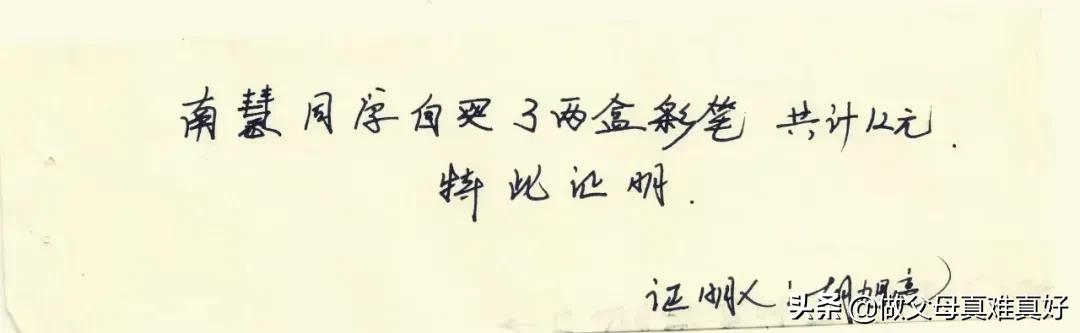 南慧同学自买了两盒彩笔 共计12元.
特此证明.
证明人:胡旭亮
头条@做父母真难真好